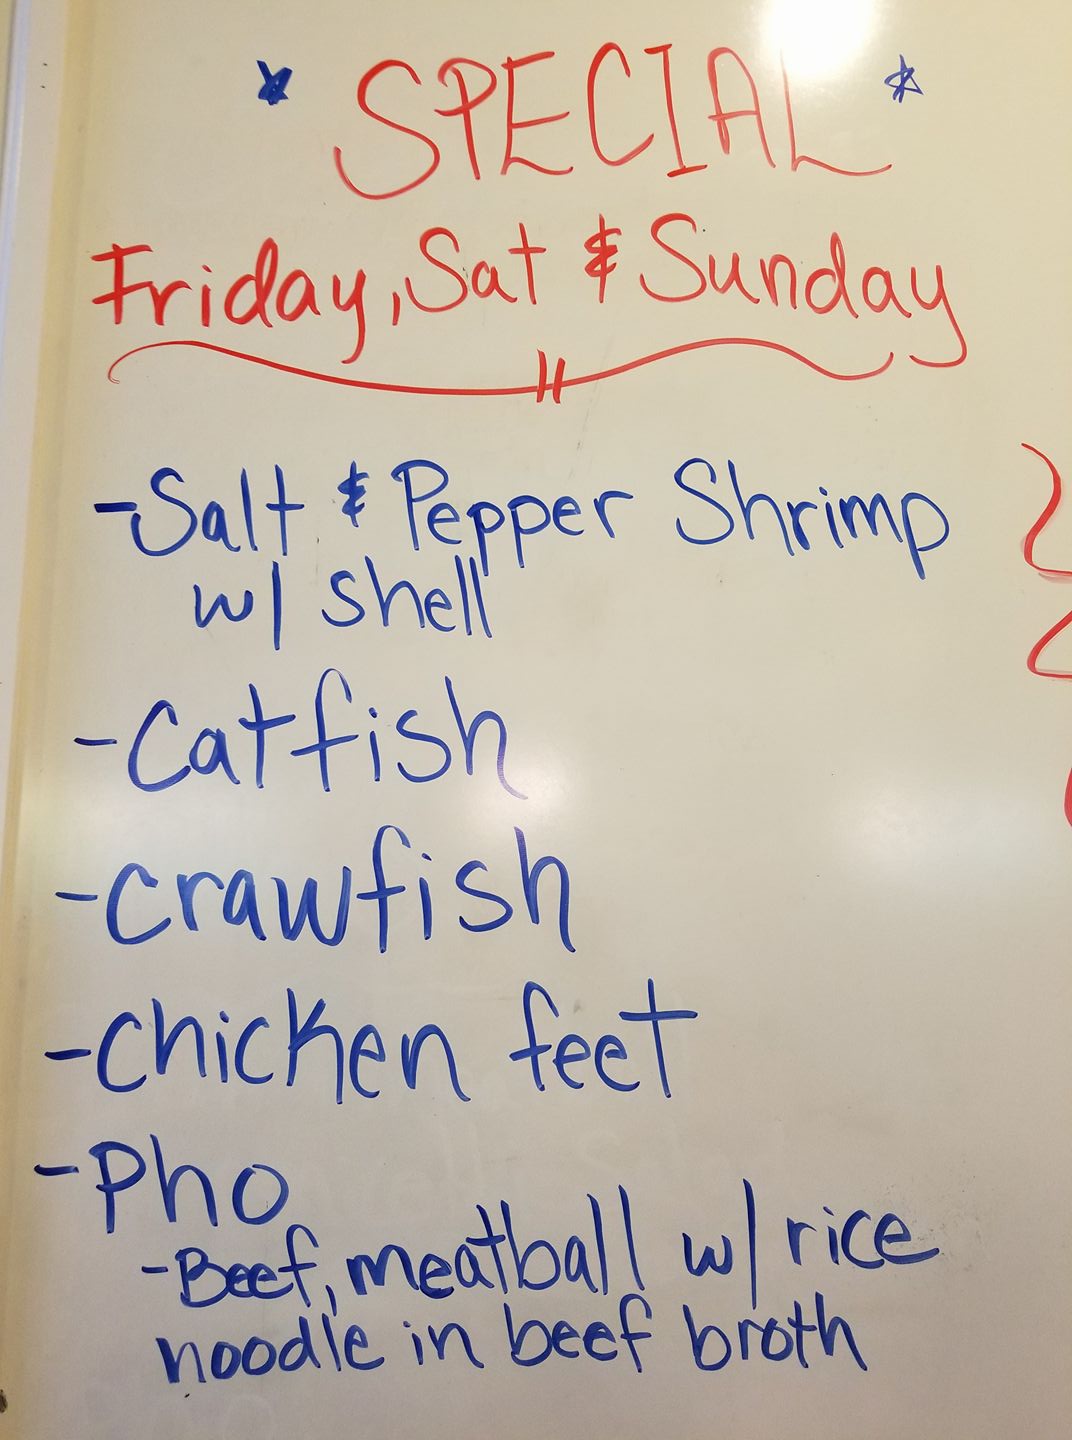 * SPECIAL *
Friday, Sat & Sunday
- Salt & Pepper Shrimp
w/ shell
- Catfish
- Crawfish
- Chicken feet
- Pho
- Beef, meatball w/ rice
noodle in beef broth